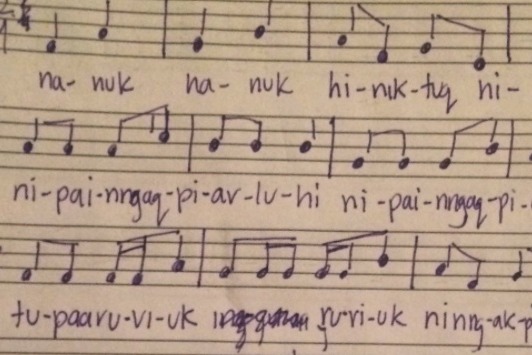 na- nuk na- nuk hi-nik-tuq ni-
ni-pai-nngaq-pi-ar-lu-ni ni-pai-nngaq-pi-
tu-paaru-vi-uk ru-vi-uk ninng-ak-p